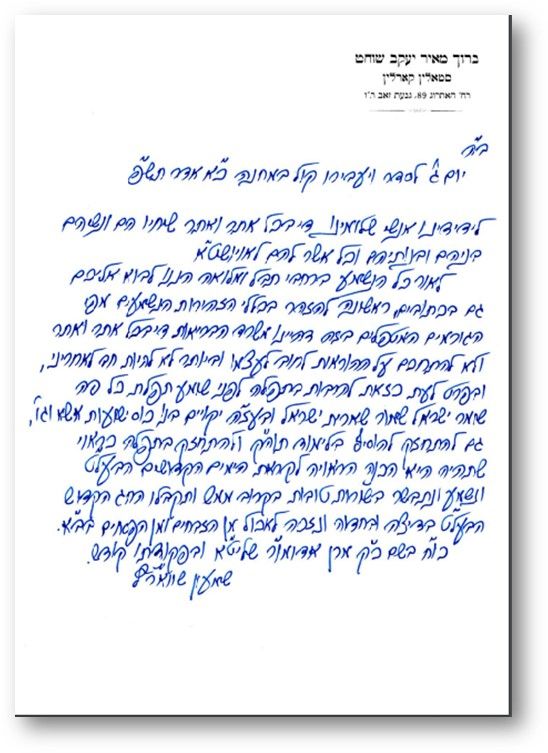 ברוך מאיר יעקב שוחט
סטאלין קארלין
רח' האתרוג 89, גבעת זאב ת"ו
ב"ה
יום ג' לסדר ויעבירו קול במחנה כ"א אדר תש"פ
לידידינו אנשי שלומינו די בכל אתר ואתר שיחיו הם ונשיהם
בניהם ובנותיהם וכל אשר להם לאויושט"א
לאור כל הנשמע ברחבי תבל ומלואה הננו לבוא אליכם
גם בכתובים, ראשונה להזהר בכללי הזהירות הנשמעים מפי
הגורמים המטפלים בזה דהיינו משרד הבריאות די בכל אתר ואתר
ולא להתחכם על ההוראות לחוב לעצמו וביותר לא להיות חב לאחריני,
ובפרט לעת כזאת להרבות בתפלה לפני שומע תפלת כל פה
שומר ישראל שמור שארית ישראל ובעז"ה יקויים בנו כוס ישועות אשא וגו',
גם להתחזק להוסיף בלימוד תוה"ק ולהתחזק בתפלה כראוי
שתהיה היא הכנה הראויה לקראת הימים הקדושים הבעל"ט
ונשמע ונתבשר בשורות טובות בקרוב ממש ותקבלו החג הקדוש
הבעל"ט בדיצה ובחדוה ונזכה לאכול מן הזבחים ומן הפסחים בב"א.
כו"ח בשם כ"ק מרן אדמו"ר שליט"א ובפקודתו קודש.
שמעון